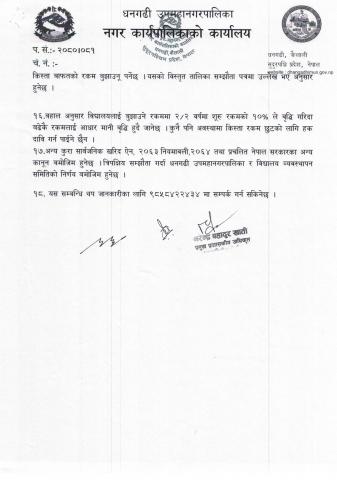 धनगढी उपमहानगरपालिका
नगर कार्यपालिकाको कार्यालय
प. सं.:-२०८०।०८१
धनगढी, कैलाली
सुदूरपश्चिम प्रदेश, नेपाल
च. नं. :-
website : dhangadhimun.gov.np
किस्ता वाफतको रकम बुझाउनु पर्नेछ । यसको विस्तृत तालिका सम्झौता पत्रमा उल्लेख भए अनुसार
हुनेछ ।
१६.बहाल अनुसार विद्यालयलाई बुझाउने रकममा २/२ वर्षमा शुरु रकमको १०% ले बृद्धि गरिदा
बढेकै रकमलाई आधार मानी बृद्धि हुदै जानेछ । कुनै पनि अवस्थामा किस्ता रकम छुटको लागि हक
दावि गर्न पाईने छैन ।
१७.अन्य कुरा सार्वजनिक खरिद ऐन, २०६३ नियमावली,२०६४ तथा प्रचलित नेपाल सरकारका अन्य
कानून बमोजिम हुनेछ । त्रिपक्षिय सम्झौता गर्दा धनगढी उपमहानगरपालिका र विद्यालय व्यवस्थापन
समितिको निर्णय बमोजिम हुनेछ ।
१८. यस सम्बन्धि थप जानकारीका लागि ९८५८४२२४३४ मा सम्पर्क गर्न सकिनेछ ।
नरेन्द्र बहादुर खाती
प्रमुख प्रशासकीय अधिकृत